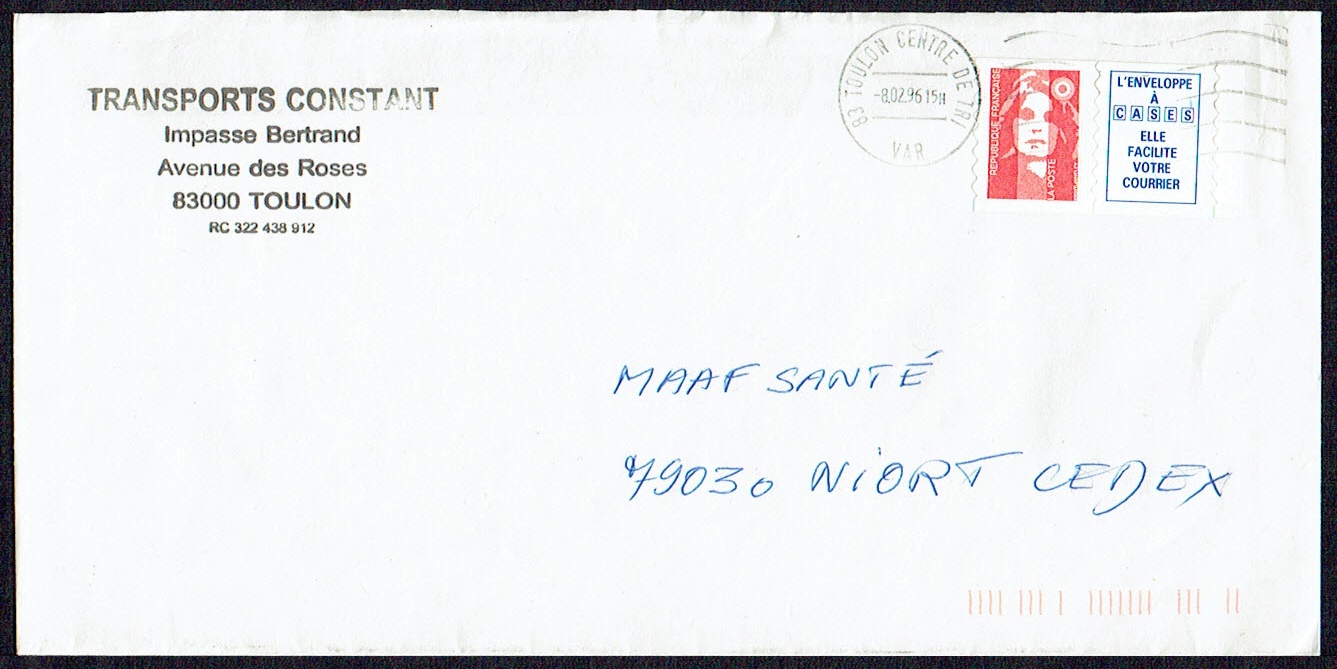 TRANSPORTS CONSTANT
Impasse Bertrand
Avenue des Roses
83000 TOULON
RC 322 438 912
83 TOULON CENTRE DE TRI
-8.02.96 15H
VAR
REPUBLIQUE FRANÇAISE
LA POSTE
L'ENVELOPPE
À
CASES
ELLE
FACILITE
VOTRE
COURRIER
MAAF SANTÉ
79030 NIORT CEDEX